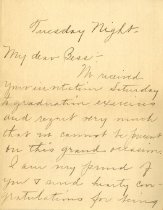 Tuesday Night-
My dear Bess-
We received
your invitation Saturday
to graduation exercises
and regret very much
that we cannot be present
on this grand occasion.
I am very proud of
you & send hearty con-
gratulations for being